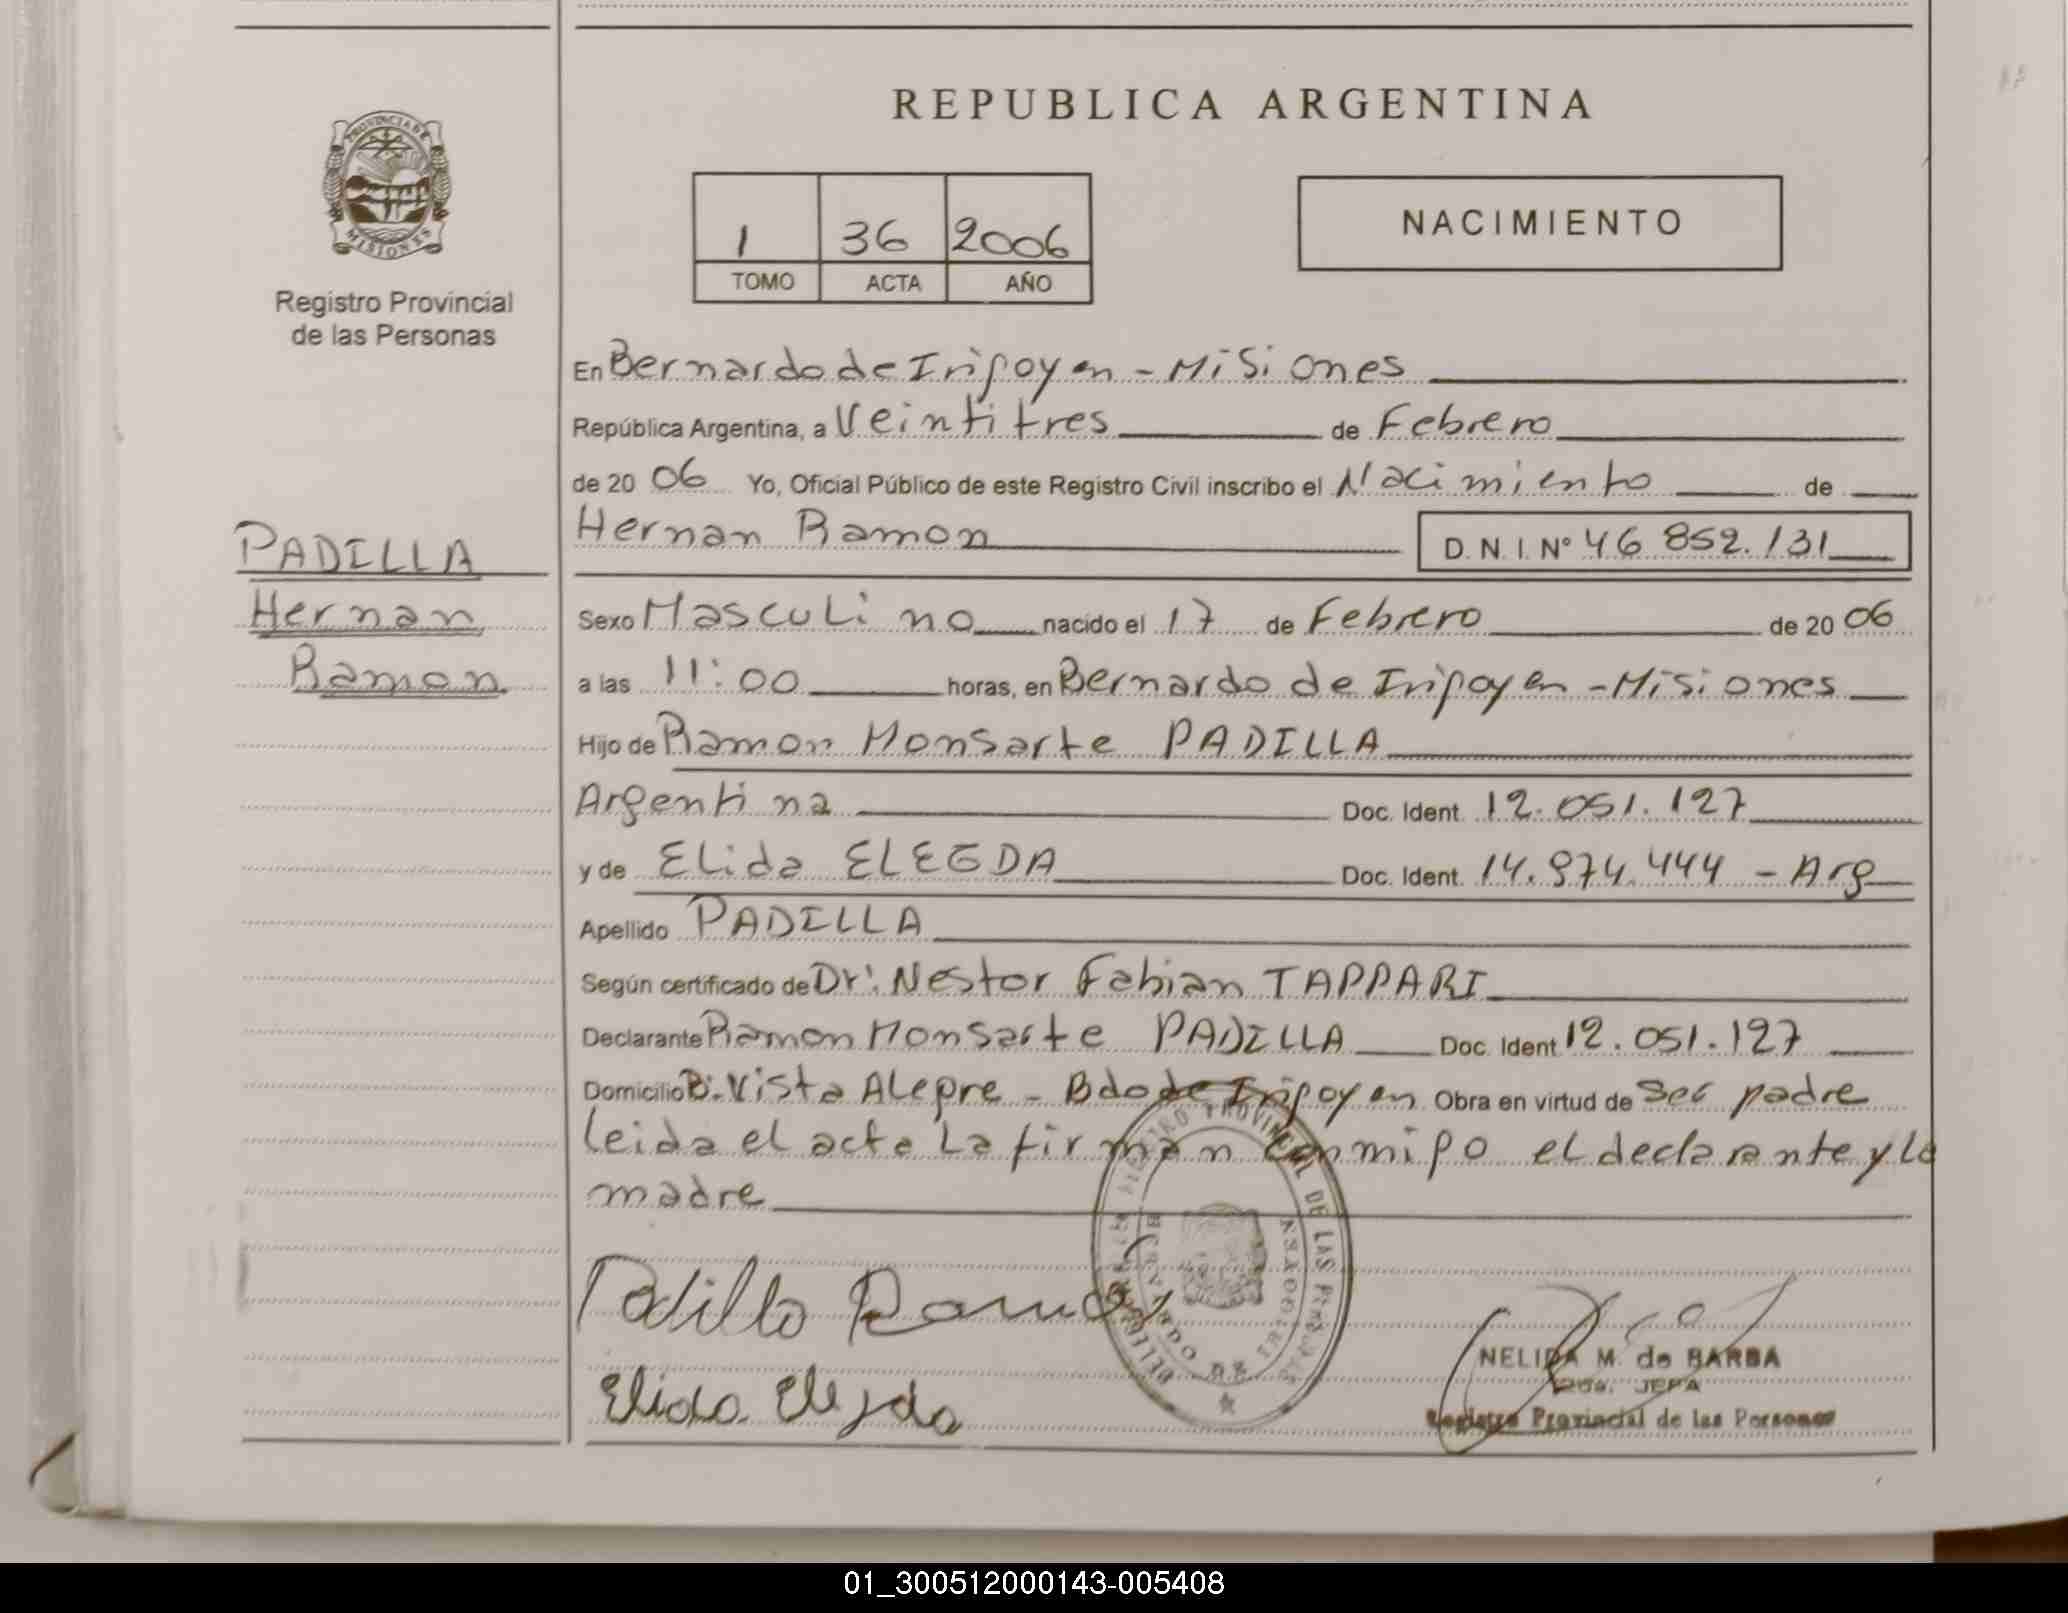 REPUBLICA ARGENTINA
PROVINCIA DE
MISIONES
Registro Provincial
de las Personas
1 36 2006
TOMO ACTA AÑO
NACIMIENTO
En Bernardo de Irigoyen - Misiones
República Argentina, a Veintitres de Febrero
de 20 06 Yo, Oficial Público de este Registro Civil inscribo el Nacimiento de
Hernan Ramon D. N. I. N° 46 852.131
PADILLA
Hernan
Ramon
Sexo Masculino nacido el 17 de Febrero de 20 06
a las 11:00 horas, en Bernardo de Irigoyen - Misiones
Hijo de Ramon Monsarte PADILLA
Argentina Doc. Ident. 12.051.127
y de Elida ELEGDA Doc. Ident. 14.974.444 - Arg
Apellido PADILLA
Según certificado de Dr: Nestor Fabian TAPPARI
Declarante Ramon Monsarte PADILLA Doc. Ident 12.051.127
Domicilio B: Vista Alegre - Bdo de Irigoyen Obra en virtud de ser padre
leida el acta La firman conmigo el declarante y la
madre
REGISTRO PROVINCIAL DE LAS PERSONAS
BERNARDO DE IRIGOYEN
Padilla Ramon
Elida Elegda
NELIDA M. de BARBA
2da. JEFA
Registro Provincial de las Personas
01_300512000143-005408